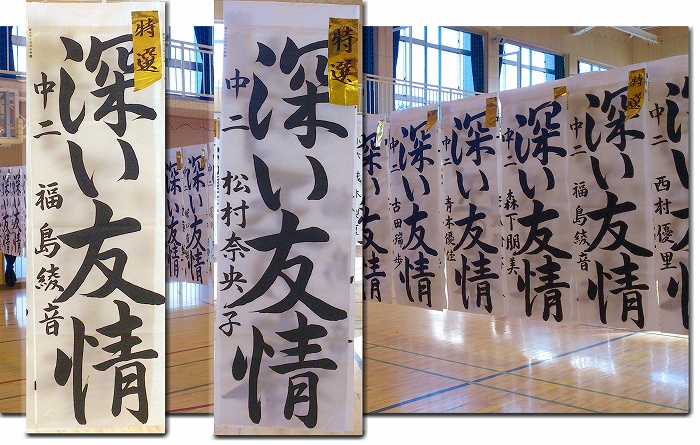 特選
深い友情
中二 福島綾音
特選
深い友情
中二 松村奈央子
深い友情
深い友情
深い友情
中二 古田瑞歩
深い友情
中二 青木優佳
深い友情
中二 森下朋美
特選
深い友情
中二 福島綾音
深い友情
中二 西村優里